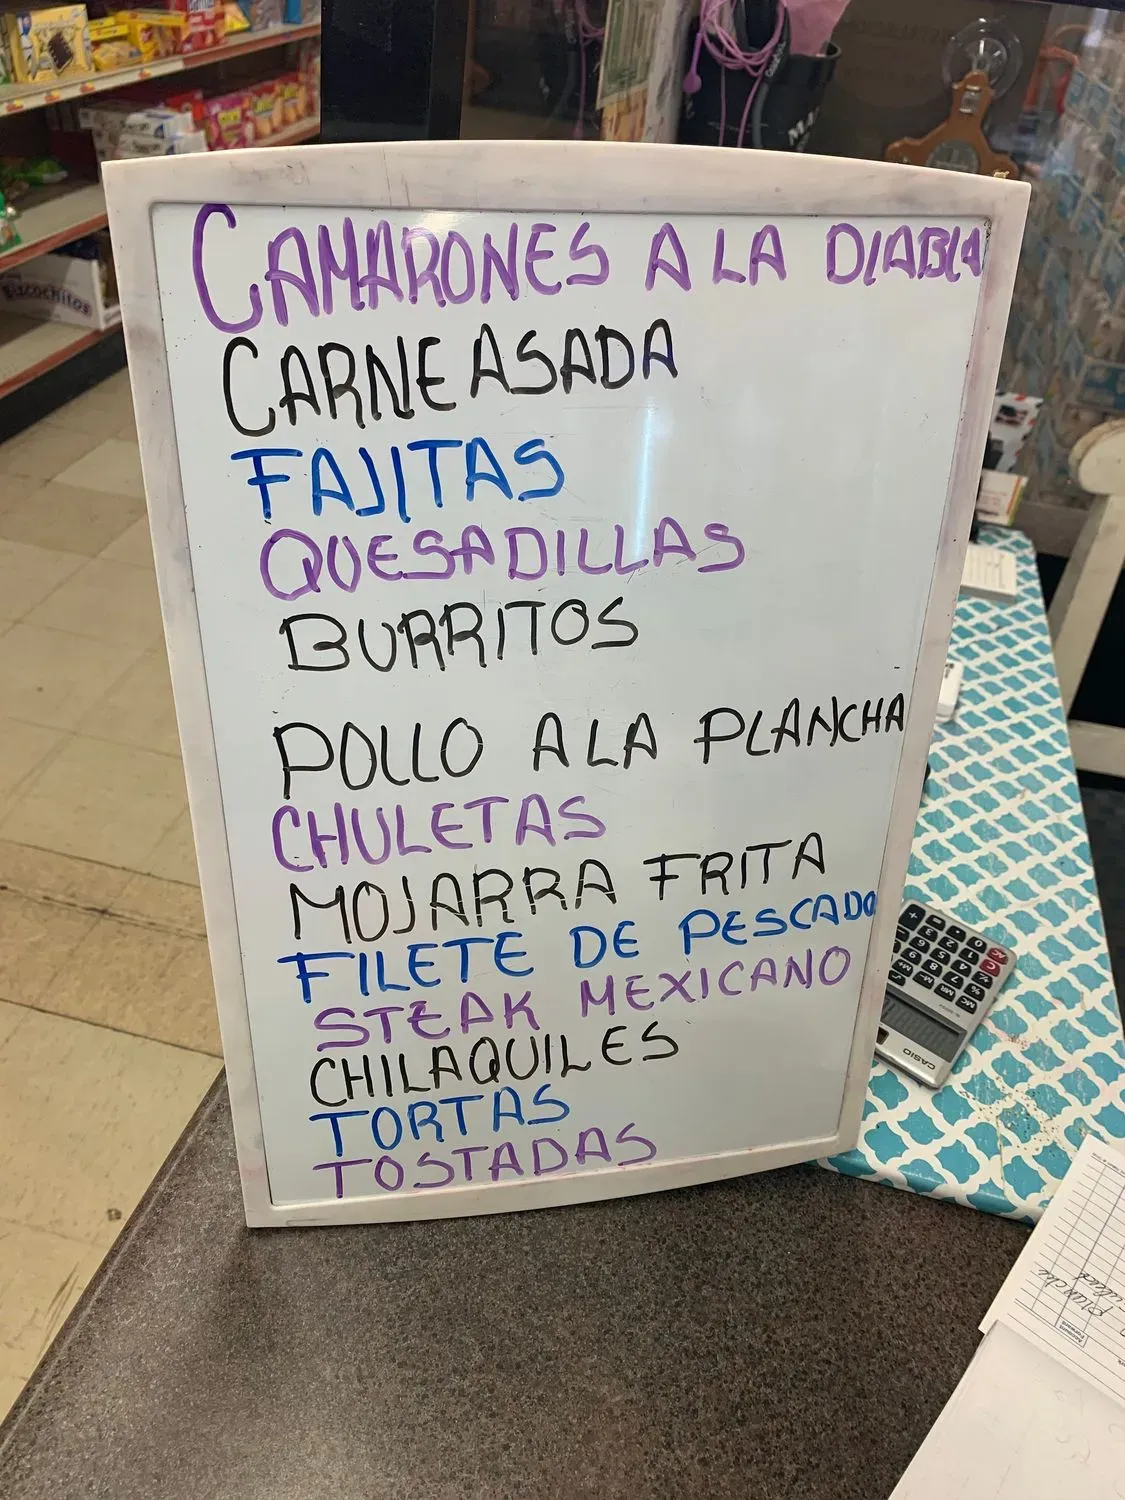 CAMARONES A LA DIABLA
CARNE ASADA
FAJITAS
QUESADILLAS
BURRITOS
POLLO A LA PLANCHA
CHULETAS
MOJARRA FRITA
FILETE DE PESCADO
STEAK MEXICANO
CHILAQUILES
TORTAS
TOSTADAS
Bizcochitos
CASIO